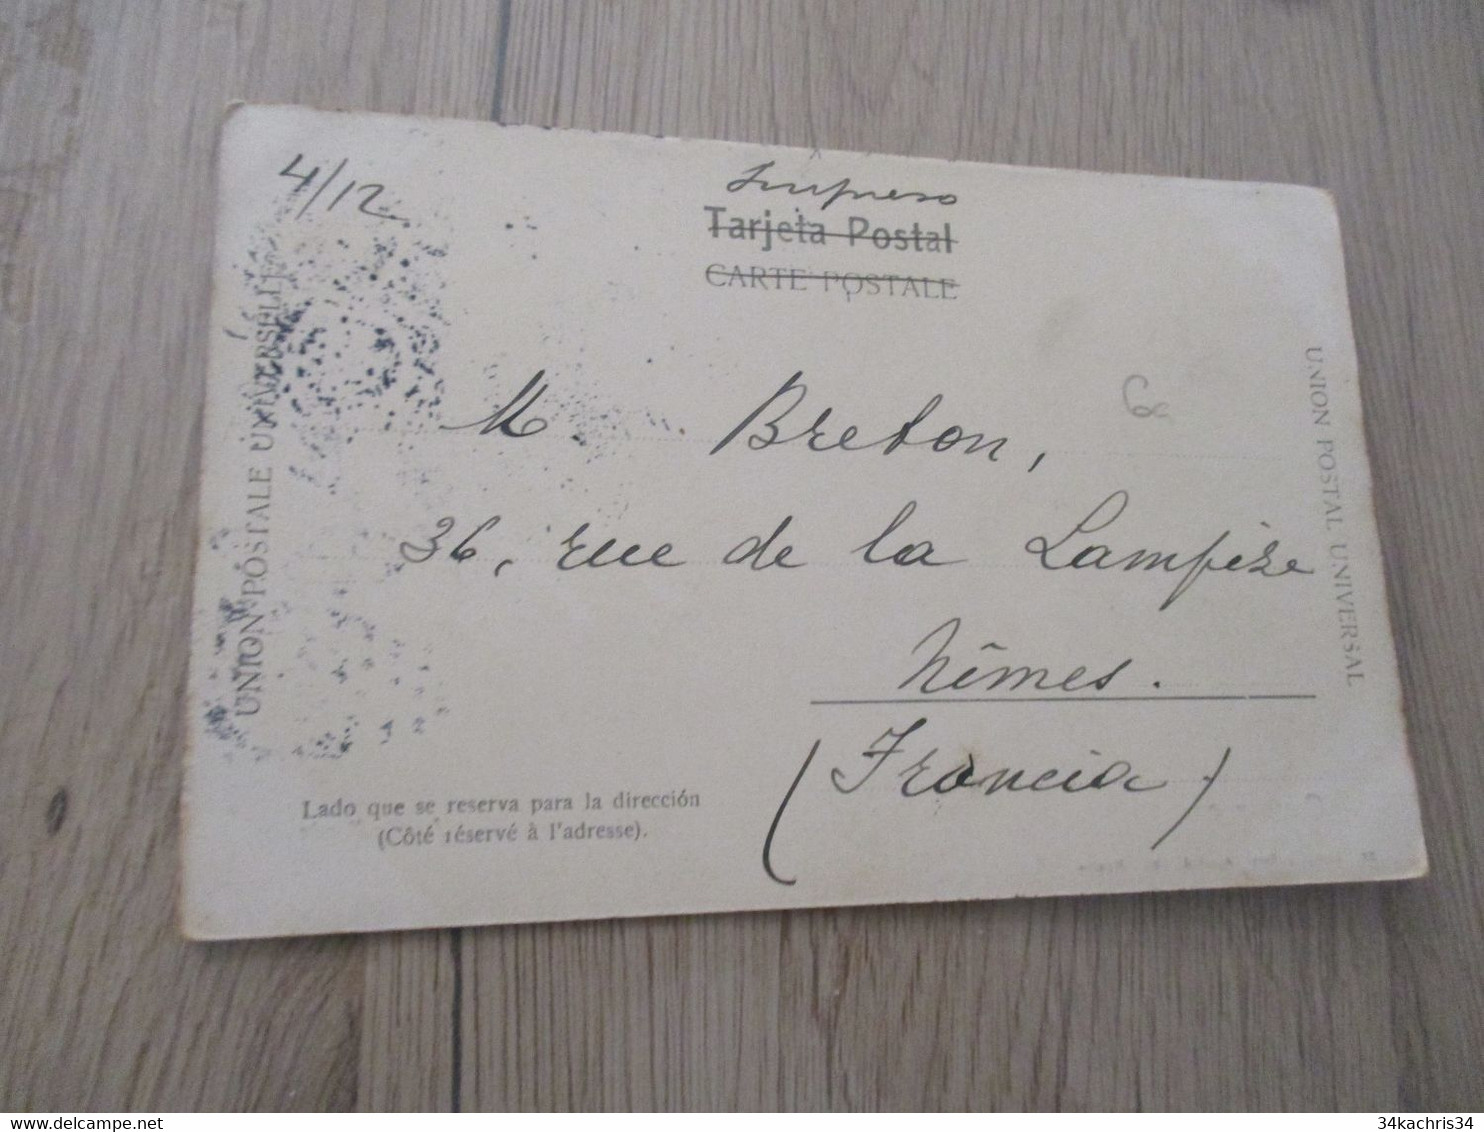 4/12
Impreso
Tarjeta Postal
CARTE POSTALE
UNION POSTALE UNIVERSELLE
UNION POSTAL UNIVERSAL
M. Breton,
36, rue de la Lampèze
Nîmes.
(Francia)
Lado que se reserva para la dirección
(Côté réservé à l'adresse).
34kachris34